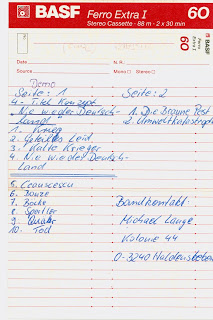 BASF Ferro Extra I 60
Stereo Cassette - 88 m - 2 x 30 min
BASF
Ferro
Extra I
60
Date N.R.:
Source Mono Stereo
Demo
Seite: 1 Seite: 2
4- Titel Konzept
„Nie wieder Deutsch- 1. Die Braune Pest
land" 2. Umweltkatastrophe
1. Krieg
2. Leid
3. Kalte Krieger
4. Nie wieder Deutsch-
Land
5. Ceausescu
6. Bonze
7. Böcke Bandkontakt:
8. Sportler
9. Michael Lange
10. Tod Kolonie 44
O-3240 Haldensleben